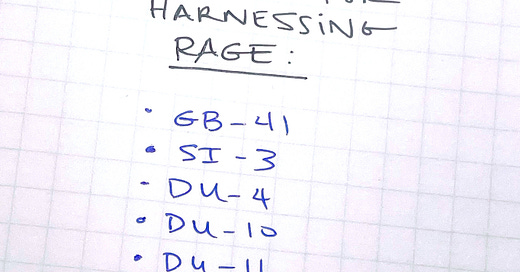 HARNESSING
RAGE:
• GB-41
• SI-3
- DU-4
• DU-10
• DU-11